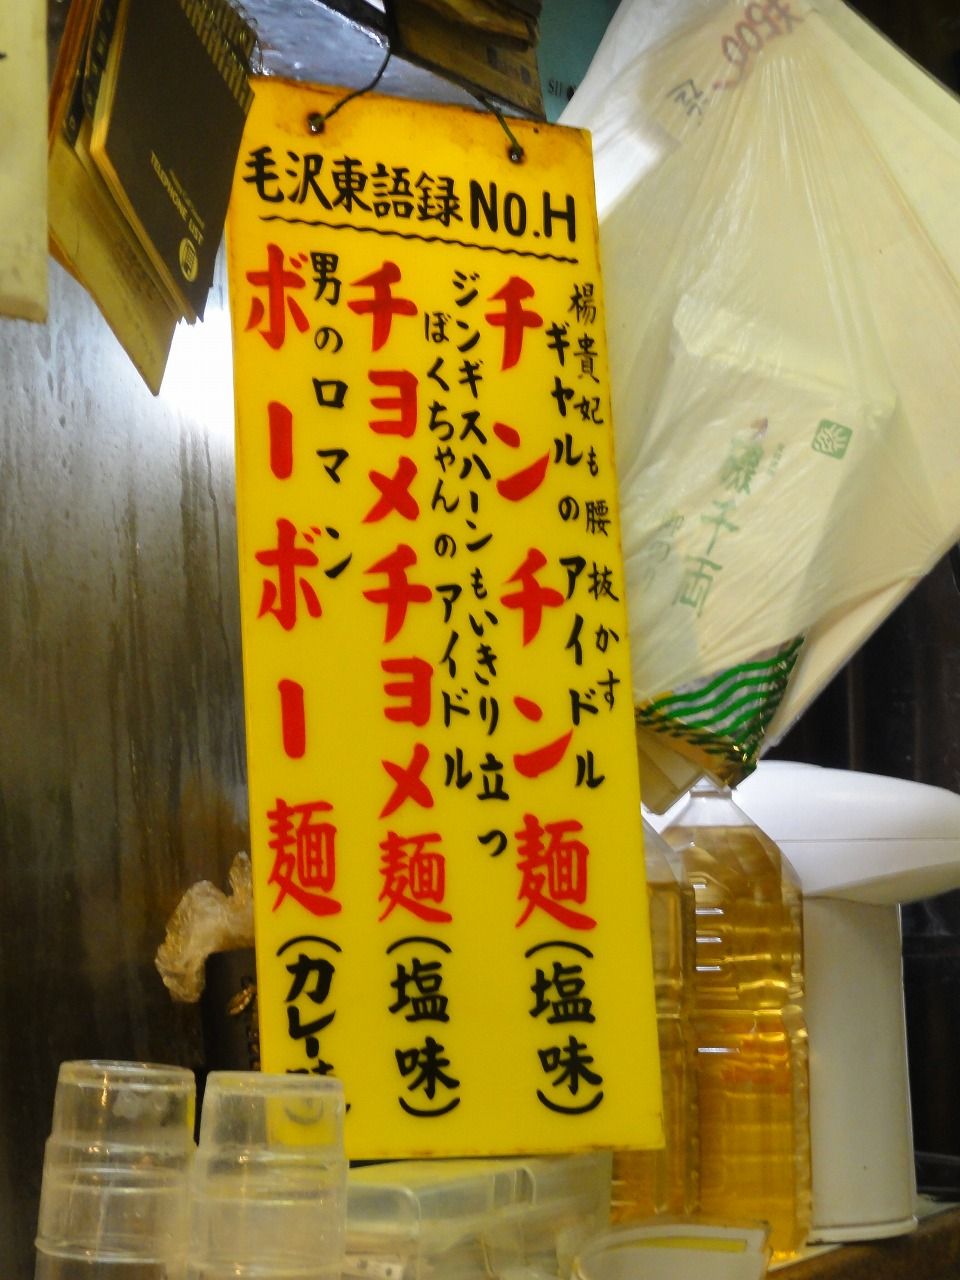 毛沢東語録 NO.H
楊貴妃も腰抜かす
ギャルのアイドル
チンチン麺(塩味)
ジンギスハーンもいきり立つ
ぼくちゃんのアイドル
チョメチョメ麺(塩味)
男のロマン
ボーボー麺(カレー味
TELEPHONE LIST